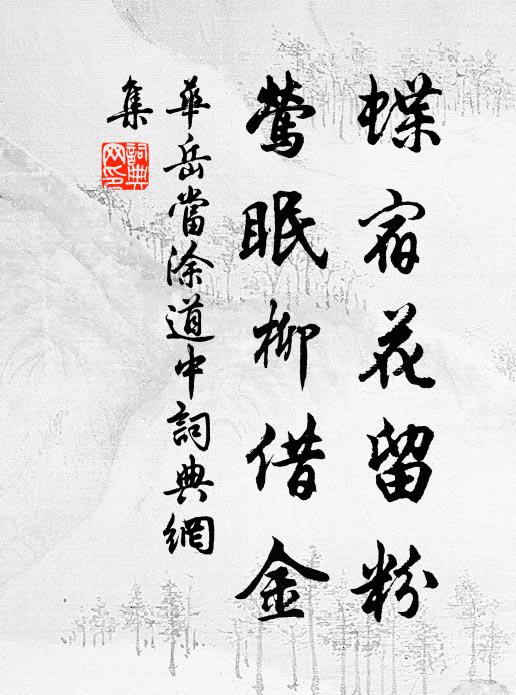 蝶宿花留粉
鶯眠柳借金
華岳當涂道中詞典網
集
詞典網印